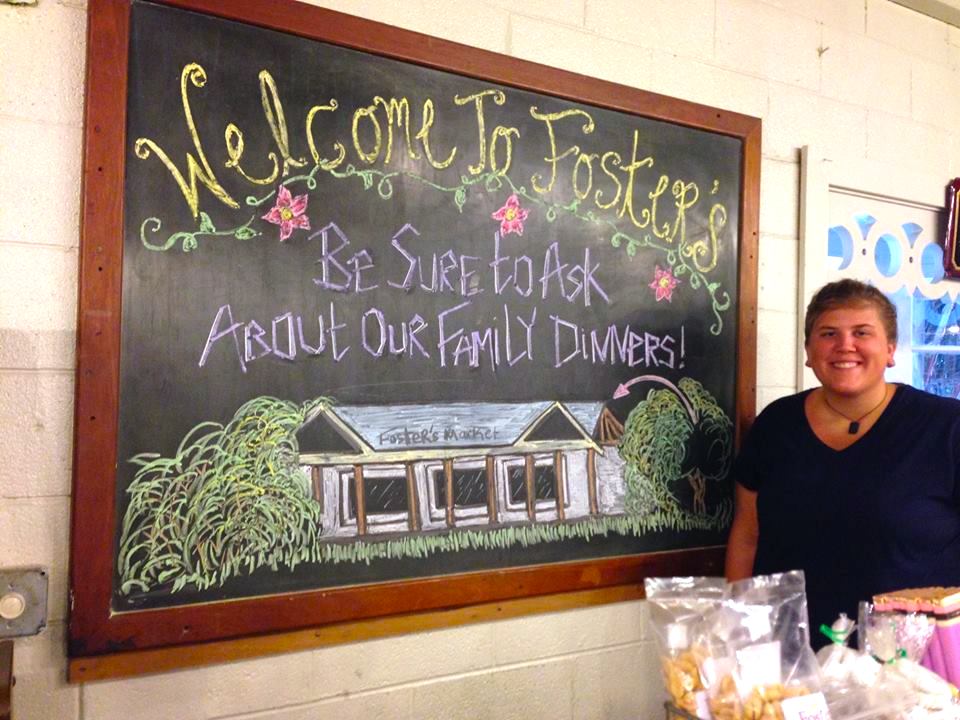 Welcome To Foster's
Be Sure to Ask
About Our Family Dinners!
Foster's Market